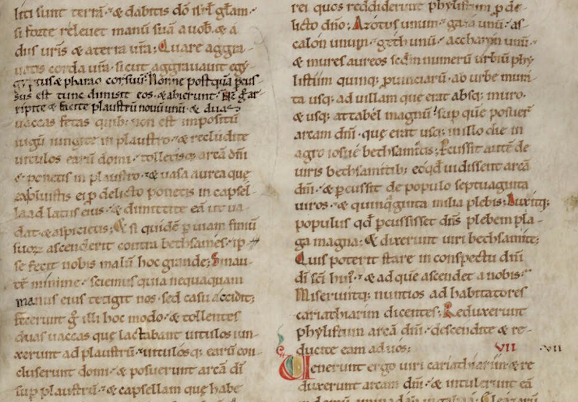 liti sunt terrā · & dabitis dō isrl̄ glam̄ ·
si forte relevet manū suā a vob · & a
diis vr̄is & a terra vr̄a · Quare aggra
vatis corda vr̄a · sicut aggravavit egẏ
& pharao cor suū · Nonne postquā p̄cus
sus est tunc dimisit eos · & abierunt · Nc̄ g̊ ar
ripite & facite plaustrū novū unū · & duas
vaccas fetas quib: non est impositū
iugū iungite in plaustro · & recludite
vitulos earū domi · tolletisq; arcā dn̄i
& ponetis in plaustro · & vasa aurea que
exsolvistis ei p̄ delicto ponetis in capsel
la ad latus eius · & dimittite eā ut va
dat · & aspicietis · Et si quidē p̱ viam finiū
suoꝝ ascenderit contra bethsames · ip
se fecit nobis malū hoc grande · Sin au
tē minime · sciemus quia nequaquam
manus eius tetigit nos · sed casu accidit ·
fecerunt g̊ illi hoc modo · & tollentes
duas vaccas que lactabant vitulos iun
xerunt ad plaustrū · vitulosq; earū con
cluserunt domi · & posuerunt arcā dī
sup̱ plaustrū · & capsellam que habe
rei quos reddiderunt phylistiim p̄ de
licto dn̄o · Azotus unum · gaza unū · as
calon unum · geth unū · accharon unū ·
& mures aureos scd̄m numerū urbiū phy
listiim quinq; p̱vinciarū · ab urbe muri
ta usq; ad villam que erat absq; muro ·
& usq; ad abel magnū · sup̱ que posuert̄
arcam dn̄i · que erat usq; in illo die in
agro iosue bethsamitis · Percussit autē de
viris bethsamitib; eo qd̄ vidissent arcā
dn̄i · & p̱cussit de populo septuaginta
viros · & quinquaginta milia plebis · Luxitq;
populus qd̄ p̱cussisset dn̄s plebem pla
ga magna · & dixerunt viri bethsamite ·
Quis poterit stare in conspectu dn̄i
dī sc̄i huī · & ad que ascendet a nobis ·
Miseruntq; nuntios ad habitatores
cariathiarim dicentes · Reduxerunt
phylistiim arcā dn̄i · descendite & re
ducite eam ad vos · VII · VII
Venerunt ergo viri cariathiarim & re
duxerunt arcam dn̄i · & intulerunt eā